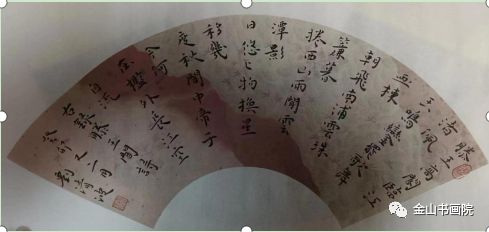 滕王高閣臨江
渚
玉鳴佩鸞罷歌舞
畫棟
朝飛南浦雲珠
簾暮
捲西山雨閒雲
潭影
日悠々物換星
移幾
度秋閣中帝子
今何
在檻外長江空
自流
右錄滕王閣詩
二月
金山书画院